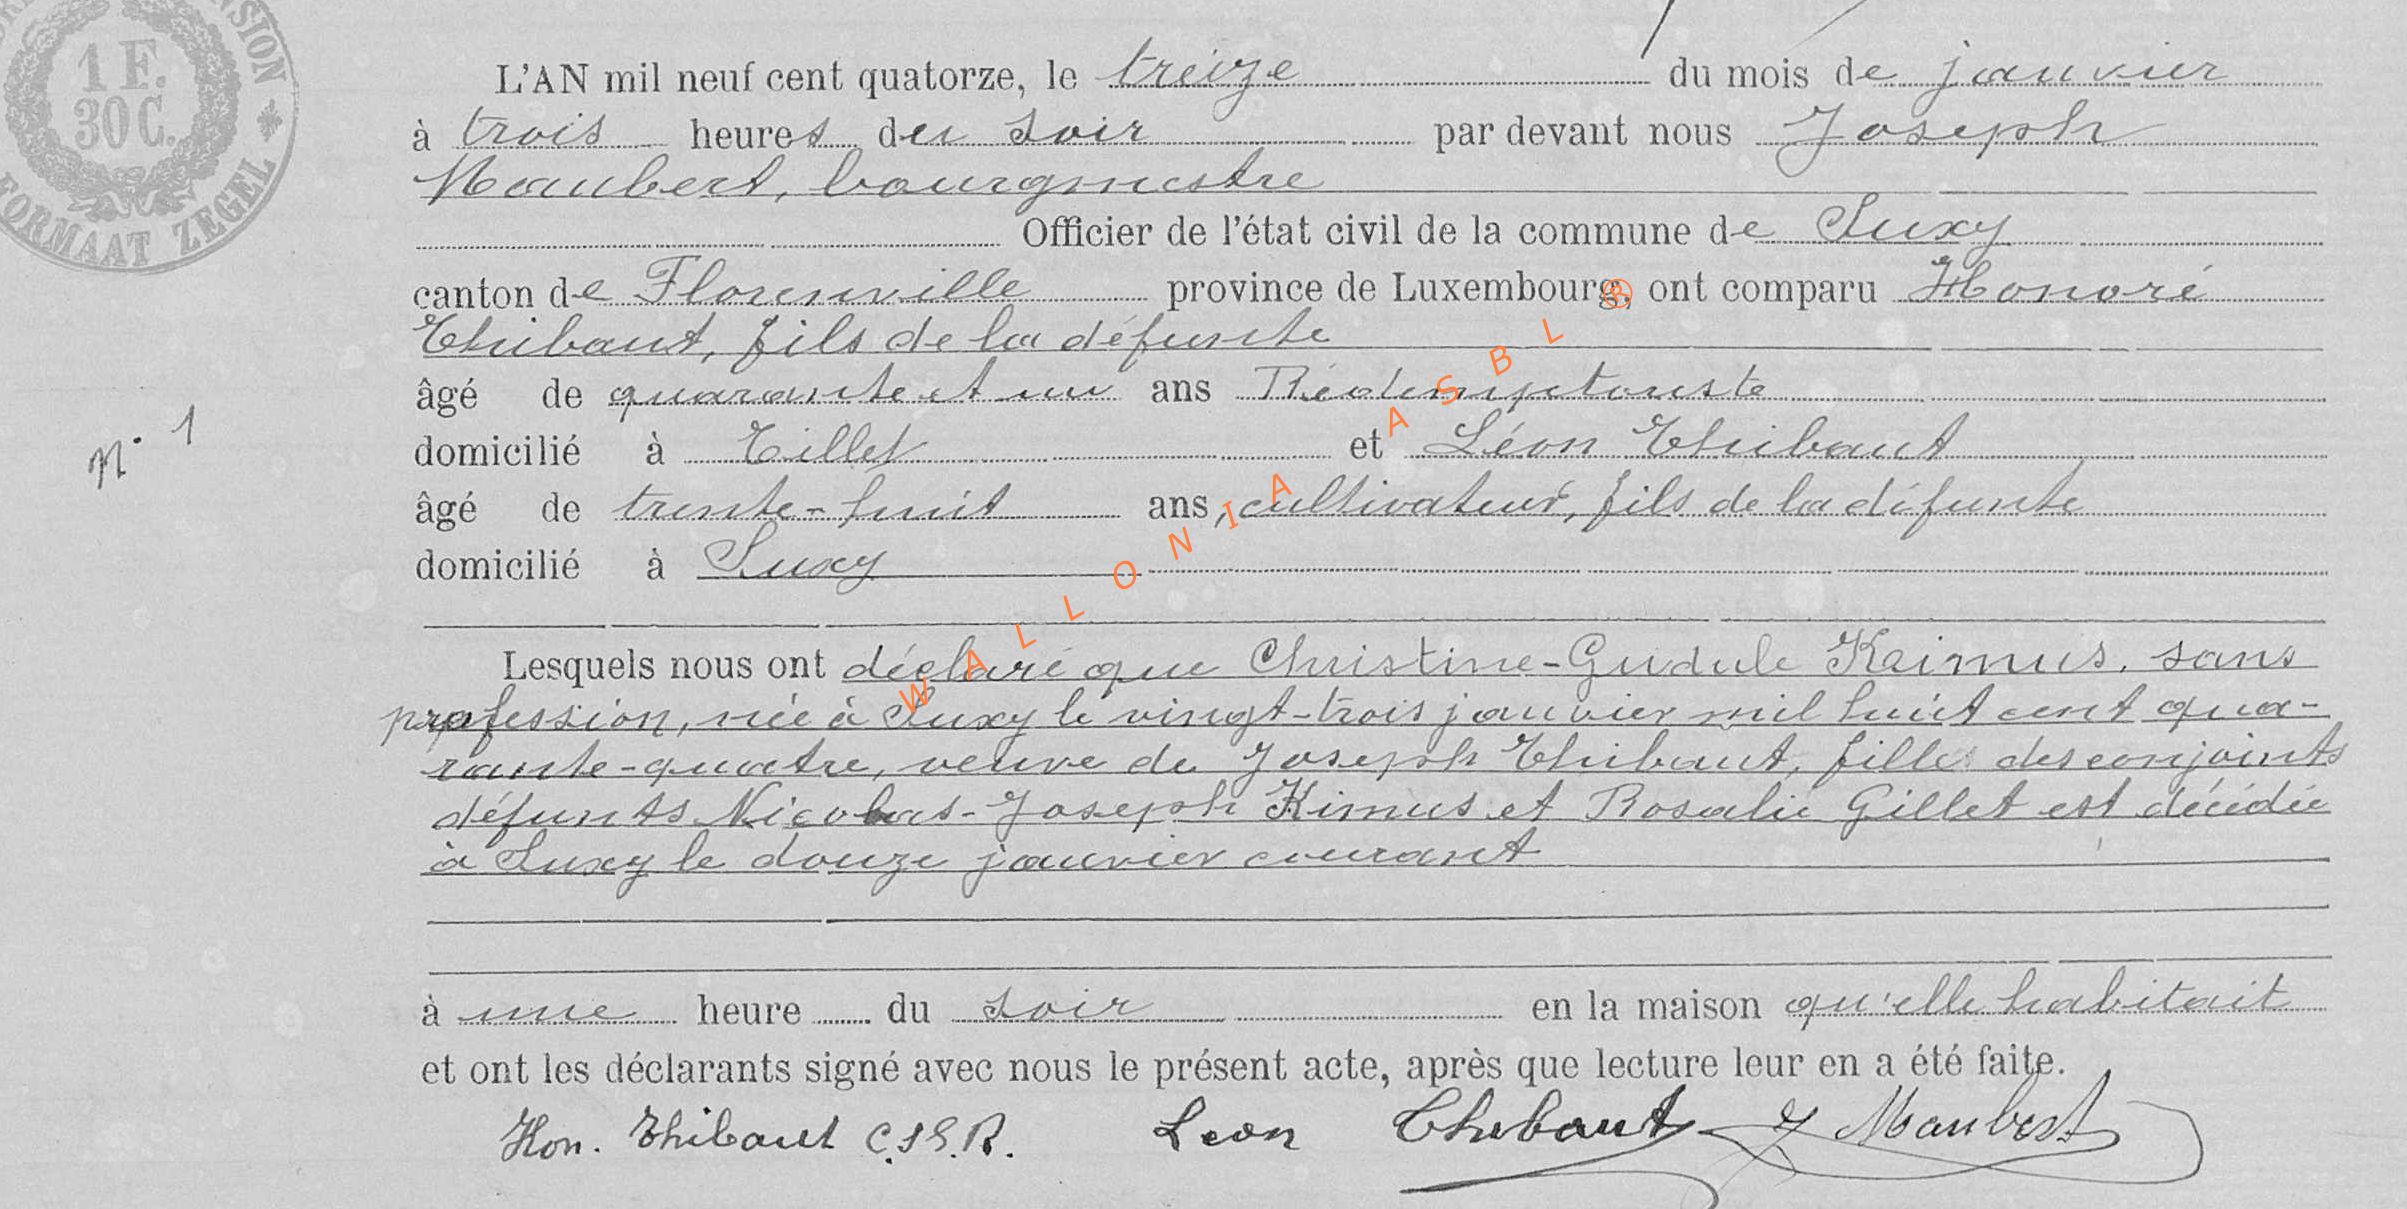 1 F.
30 C.
FORMAAT ZEGEL
L'AN mil neuf cent quatorze, le treize du mois de janvier
à trois heures du soir par devant nous Joseph
Maubert, bourgmestre
Officier de l'état civil de la commune de Suxy
canton de Florenville province de Luxembourg, ont comparu Honoré
Thibaut, fils de la défunte
âgé de quarante et un ans Rédemptoriste
domicilié à Tillet et Léon Thibaut
N° 1
âgé de trente-huit ans, cultivateur, fils de la défunte
domicilié à Suxy
Lesquels nous ont déclaré que Christine-Gudule Kaimus, sans
profession, née à Suxy le vingt-trois janvier mil huit cent qua-
rante-quatre, veuve de Joseph Thibaut, fille des conjoints
défunts Nicolas-Joseph Kimus et Rosalie Gillet est décédée
à Suxy le douze janvier courant
à une heure du soir en la maison qu'elle habitait
et ont les déclarants signé avec nous le présent acte, après que lecture leur en a été faite.
Hon. Thibaut C.SS.R. Leon Thibaut J Maubert
WALLONIA ASBL ®